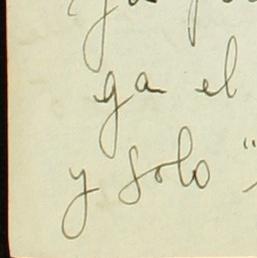 ga el
y solo "